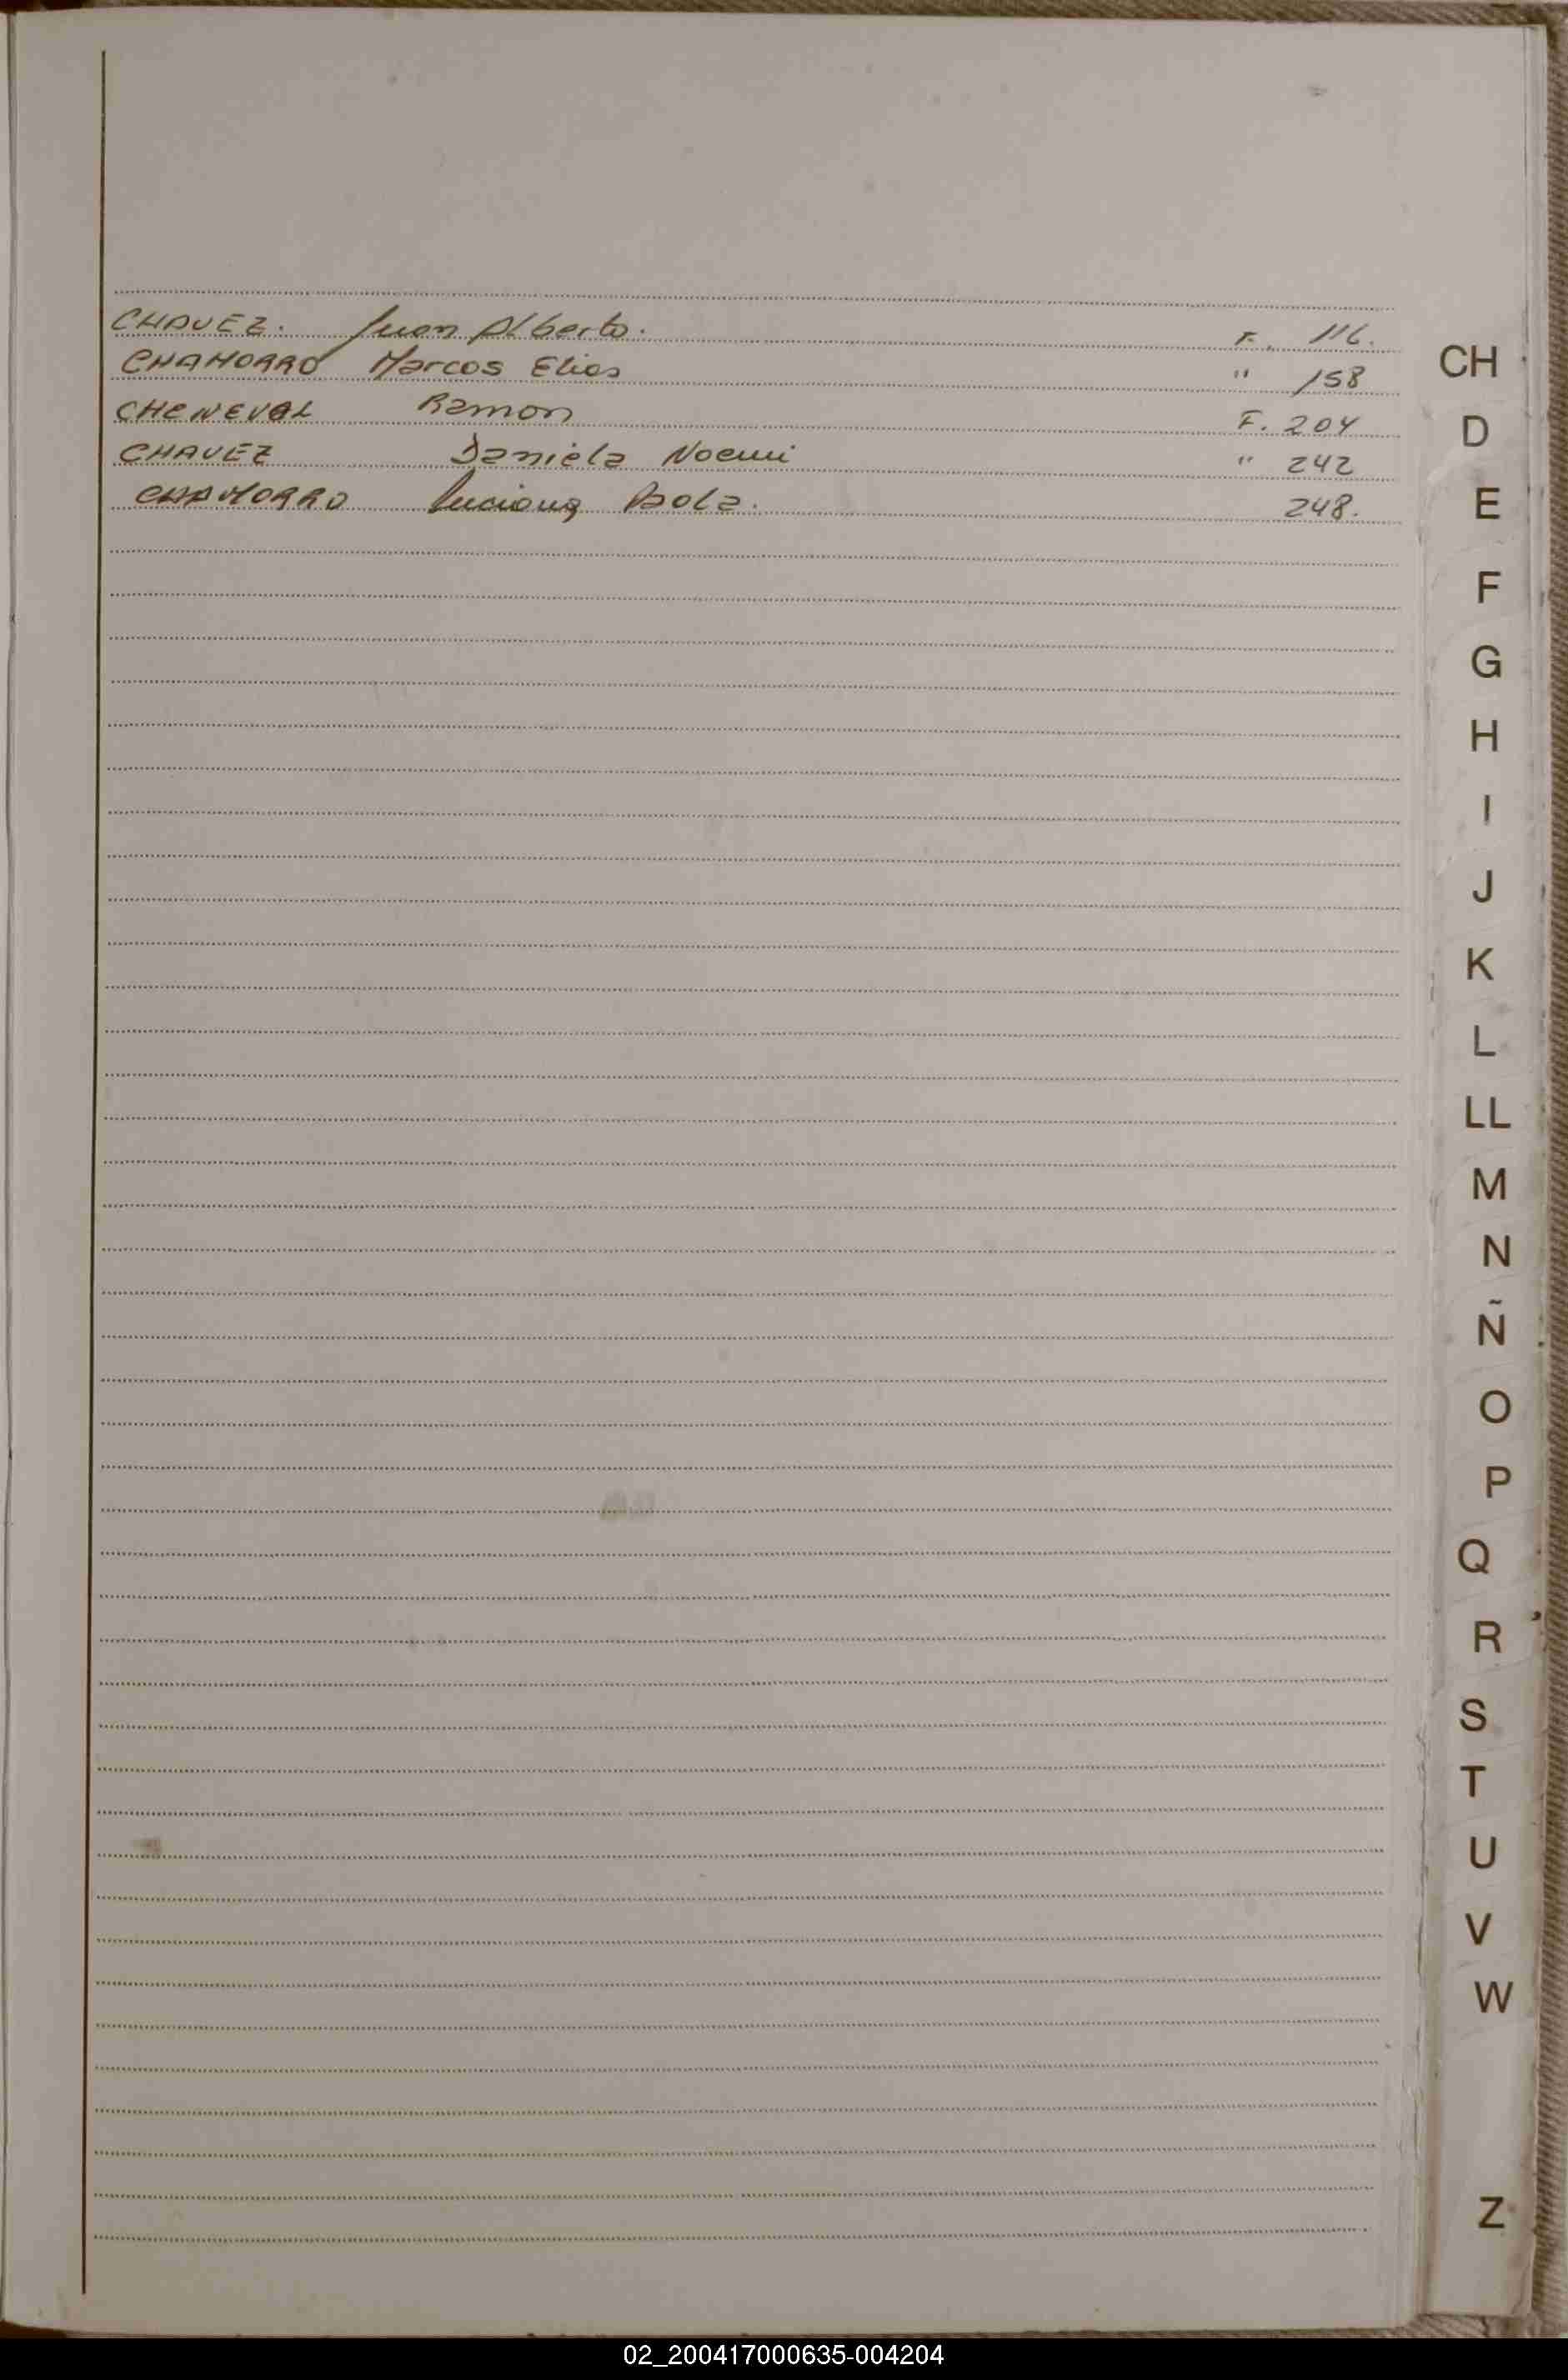 CHAVEZ. Juan Alberto. F. 116.
CHAMORRO Marcos Elias " 158
CHENEVAL Ramon F. 204
CHAVEZ Daniela Noemi " 242
CHAMORRO Luciana Paola. 248.
CH
D
E
F
G
H
I
J
K
L
LL
M
N
Ñ
O
P
Q
R
S
T
U
V
W
Z
02_200417000635-004204